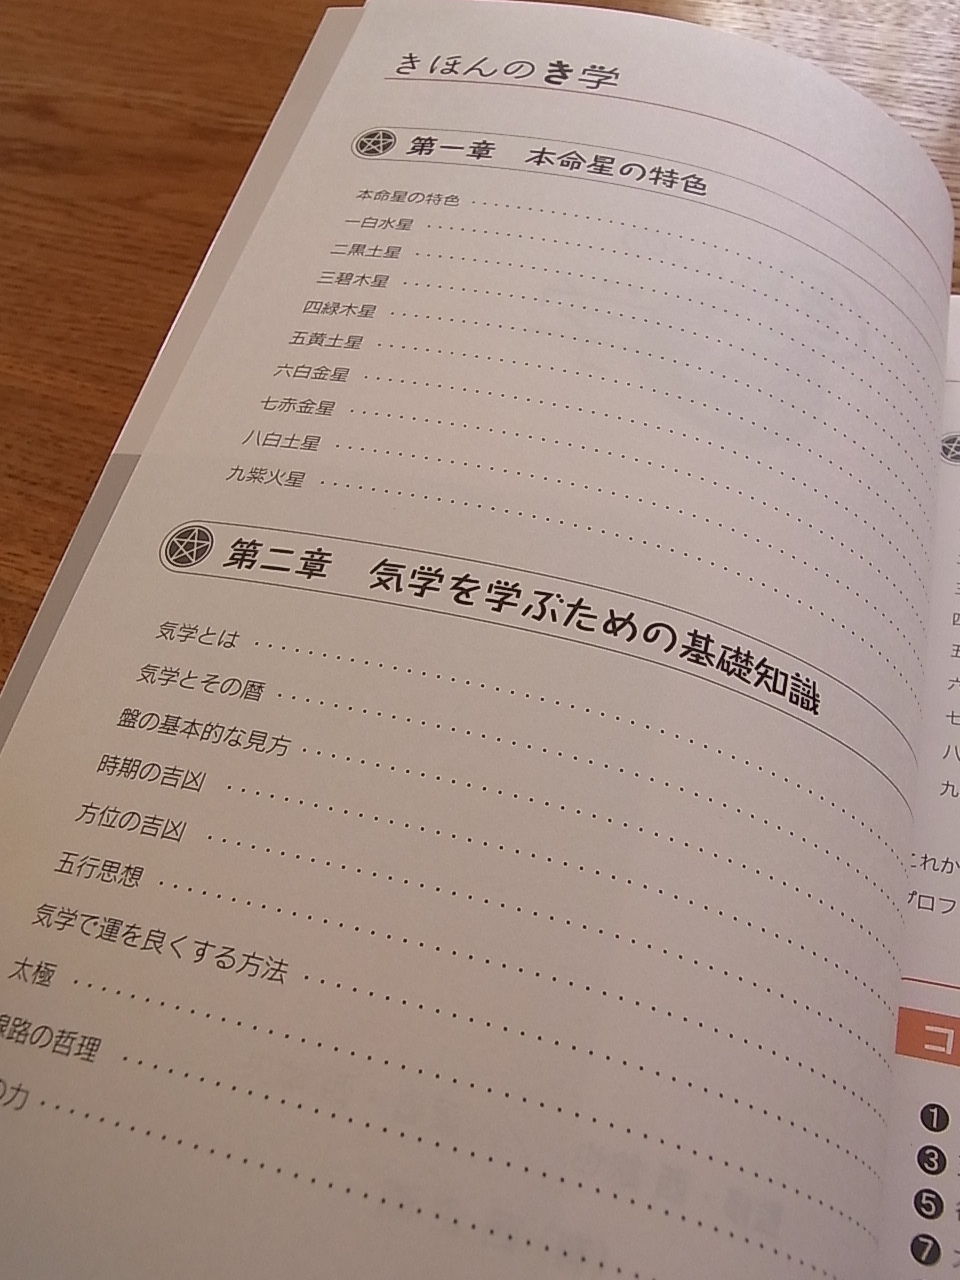 きほんのき学
第一章 本命星の特色
本命星の特色
一白水星
二黒土星
三碧木星
四緑木星
五黄土星
六白金星
七赤金星
八白土星
九紫火星
第二章 気学を学ぶための基礎知識
気学とは
気学とその暦
盤の基本的な見方
時期の吉凶
方位の吉凶
五行思想
気学で運を良くする方法
太極
線路の哲理
の力
三
四
五
六
七
八
九
これか
プロフ
コ
❶
❸
❺
❼